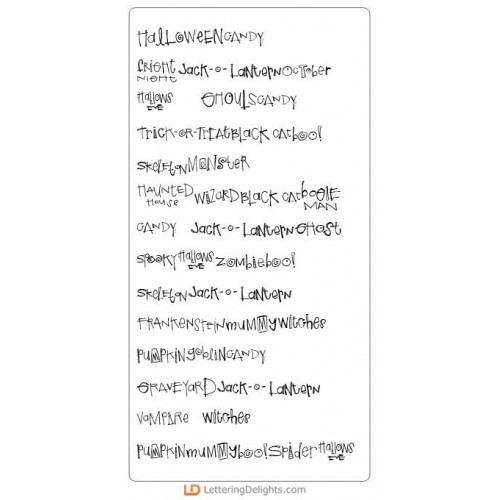 HaLLOWeENCANDY
fRIGHT NIGHT Jack-o-LanternOCTOber
HaLLOWS EVE GHOULSCANDY
TRICK-OR-TREATBLACK CATboo!
SKELETONMONSTER
HAUNTED House WIZARDBLACK CATBOGIE MAN
CANDY Jack-o-LanternGHOST
SPOOKYHaLLOWS EVEZOMbieboo!
SKELETONJack-o-Lantern
FRANKENSTEINMUMMYWitches
PUMPKINGObLINCANDY
GRAVEYARDJack-o-Lantern
VAMPIRE Witches
PUMPKINMUMMYboo!SPiderHaLLOWS EVE
LD LetteringDelights.com